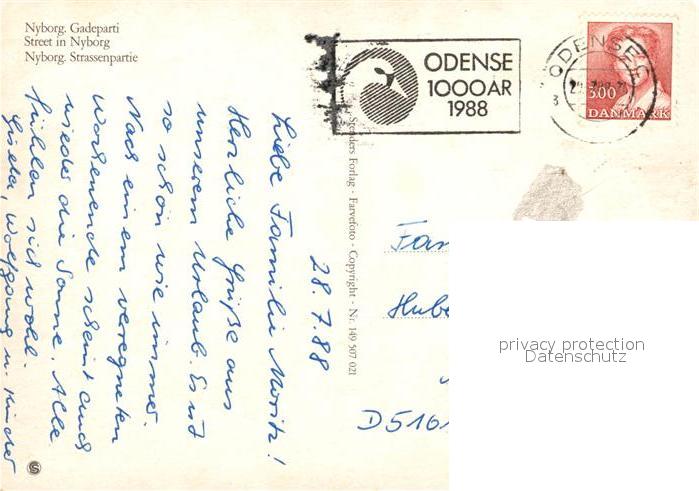 Nyborg. Gadeparti
Street in Nyborg
Nyborg. Strassenpartie
ODENSE
1000 AR
1988
ODENSE C
3.00
DANMARK
28.7.88
Liebe Familie Moritz!
Herzliche Grüße aus
unserem Urlaub. Es ist
so schön wie immer.
Nach einem verregneten
Wochenende scheint auch
wieder die Sonne. Alle
fühlen sich wohl.
Gisela, Wolfgang u. Kinder
Stenders Forlag · Farvefoto · Copyright · Nr. 149 507 021
Fam
Hube
D 5161
privacy protection
Datenschutz